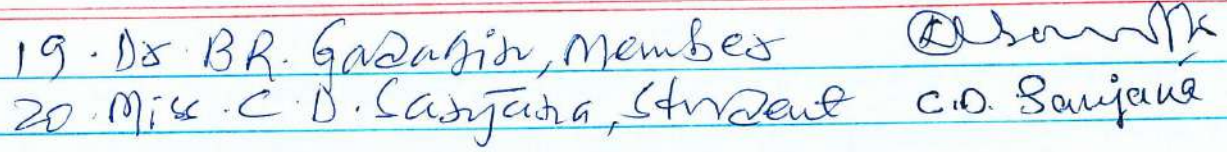 19. Dr BR. , Member
20. Miss. C. D. Sanjana, Student C.D. Sanjana